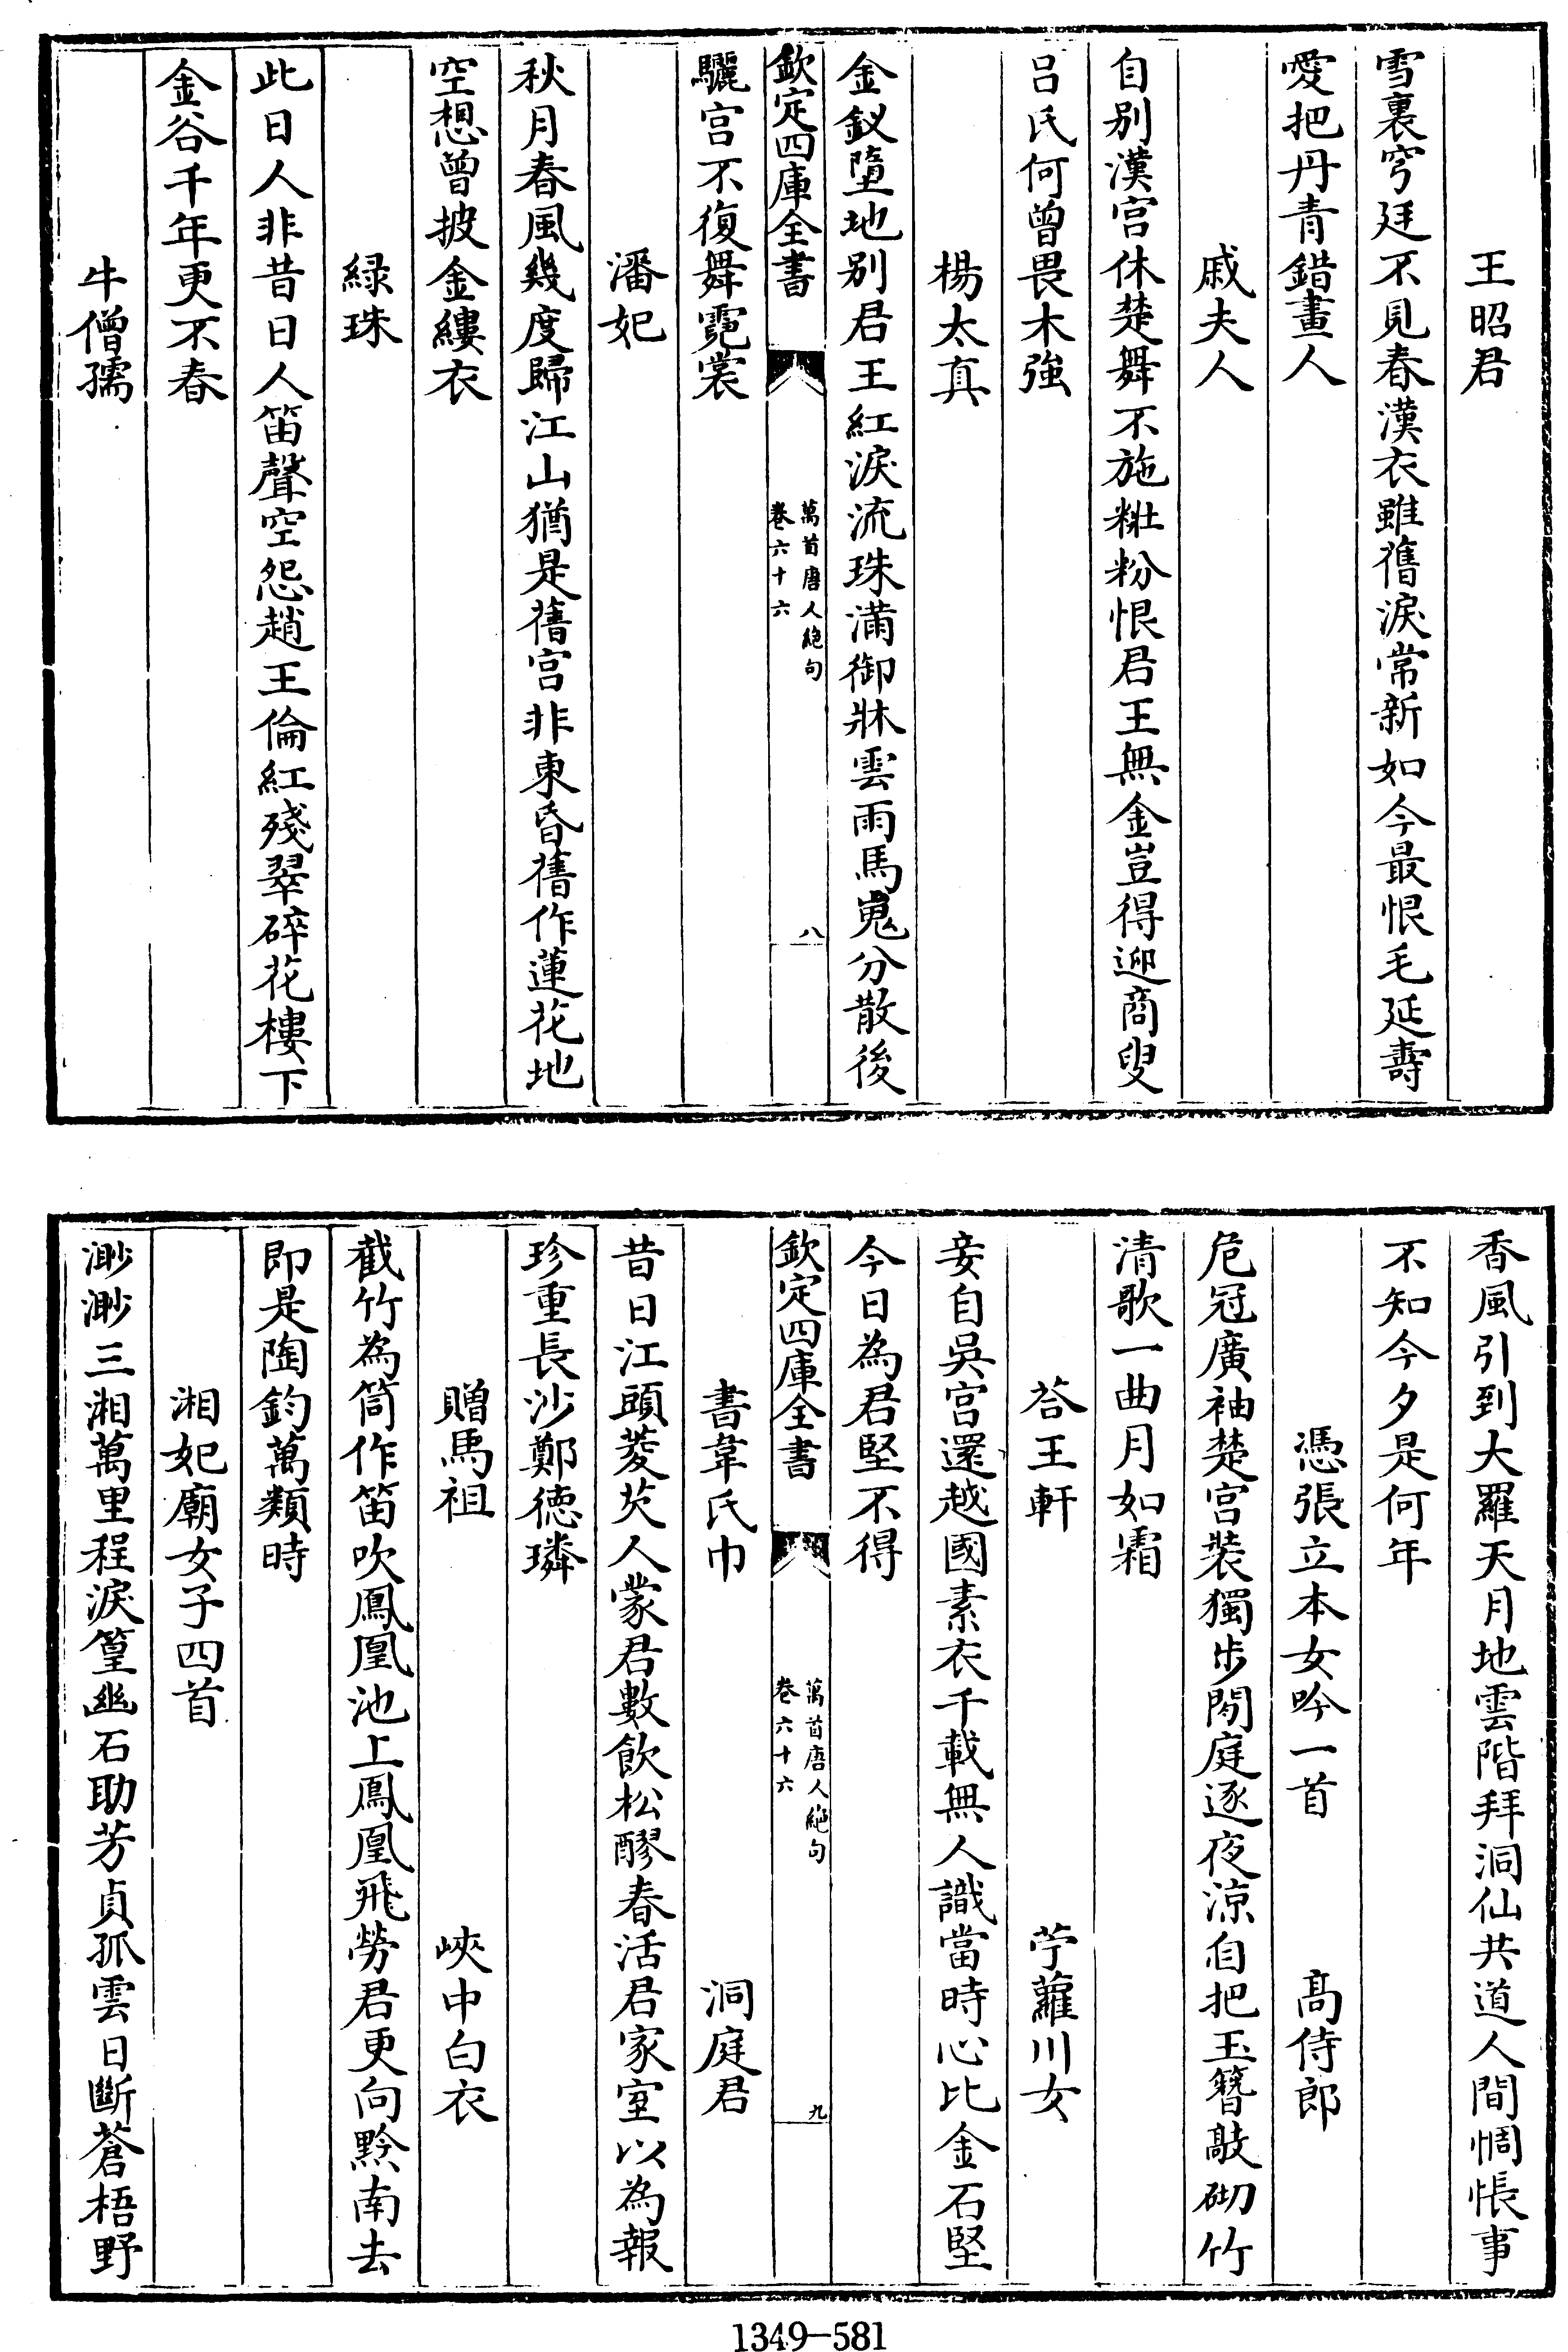 王昭君
雪裏穹廷不見春漢衣雖舊淚常新如今最恨毛延壽
愛把丹青錯畫人
戚夫人
自别漢宫休楚舞不施粧粉恨君王無金豈得迎商叟
吕氏何曾畏木強
楊太真
金釵墮地别君王紅淚流珠滿御牀雲雨馬嵬分散後
欽定四庫全書
萬首唐人絶句
卷六十六
八
驪宫不復舞霓裳
潘妃
秋月春風幾度歸江山猶是舊宫非東昏舊作蓮花地
空想曾披金縷衣
緑珠
此日人非昔日人笛聲空怨趙王倫紅殘翠碎花樓下
金谷千年更不春
牛僧孺
香風引到大羅天月地雲階拜洞仙共道人間惆悵事
不知今夕是何年
憑張立本女吟一首 髙侍郎
危冠廣袖楚宫装獨步閒庭逐夜涼自把玉簪敲砌竹
清歌一曲月如霜
荅王軒 苧蘿川女
妾自吳宫還越國素衣千載無人識當時心比金石堅
今日為君堅不得
欽定四庫全書
萬首唐人絶句
卷六十六
九
書韋氏巾 洞庭君
昔日江頭菱芡人蒙君數飲松醪春活君家室以為報
珍重長沙鄭德璘
贈馬祖 峽中白衣
截竹為筒作笛吹鳳凰池上鳳凰飛勞君更向黔南去
即是陶鈞萬類時
湘妃廟女子四首
渺渺三湘萬里程淚篁幽石助芳貞孤雲日斷蒼梧野
1349-581